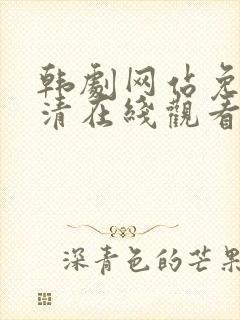 韩劇网站免
清在綫觀看
深青色的芒果